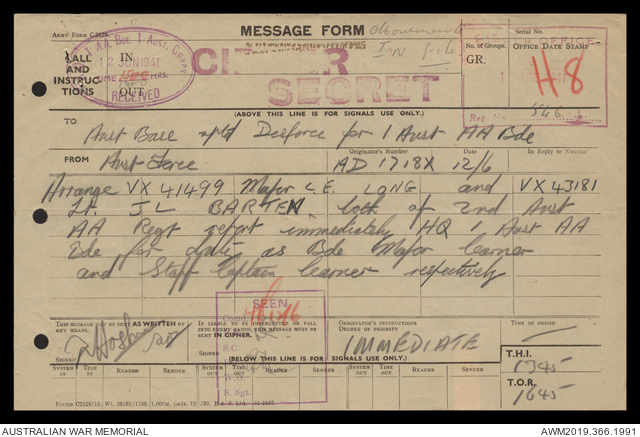 ARMY FORM C.2128.
MESSAGE FORM
Serial No.
CALL
AND
INSTRUC-
TIONS
IN
OUT
1 AA BDE. 1 AUST. CORPS
12 JUN 1941
TIME 1800 HRS.
RECEIVED
CIPHER
SECRET
No. of Groups.
GR.
OFFICE DATE STAMP
H8
546
(ABOVE THIS LINE IS FOR SIGNALS USE ONLY.)
TO
Aust Base rptd Desforce for 1 Aust AA Bde
FROM
Aust Force
Originator's Number
AD 1718X
Date
12/6
In Reply to Number
Arrange VX 41499 Major C.E. LONG and VX 43181
Lt. J L BARTEN both of 2nd Aust
AA Regt report immediately HQ 1 Aust AA
Bde for duty as Bde Major learner
and Staff Captain learner respectively
THIS MESSAGE MAY BE SENT AS WRITTEN BY
ANY MEANS.
SIGNED
IF LIABLE TO BE INTERCEPTED OR FALL
INTO ENEMY HANDS, THIS MESSAGE MUST BE
SENT IN CIPHER.
SIGNED
SEEN
S.C.
S. Sgt.
ORIGINATOR'S INSTRUCTIONS
DEGREE OF PRIORITY
IMMEDIATE
TIME OF ORIGIN
(BELOW THIS LINE IS FOR SIGNALS USE ONLY.)
T.H.I.
1545
T.O.R.
1645
SYSTEM IN
TIME IN
READER
SENDER
SYSTEM OUT
TIME OUT
READER
SENDER
SYSTEM OUT
TIME OUT
READER
SENDER
AUSTRALIAN WAR MEMORIAL
AWM2019.366.1991